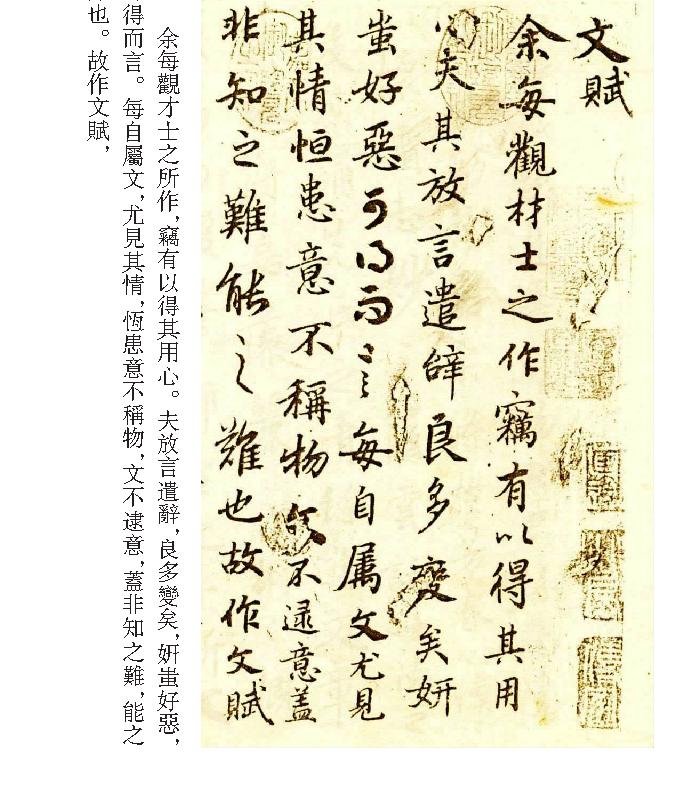 文賦
余每觀材士之作竊有以得其用
心夫其放言遣辞良多變矣妍
蚩好惡可得而言每自属文尤見
其情恒患意不稱物文不逮意盖
非知之難能之難也故作文賦
余每觀才士之所作,竊有以得其用心。夫放言遣辭,良多變矣,妍蚩好惡,
得而言。每自屬文,尤見其情,恆患意不稱物,文不逮意,蓋非知之難,能之
也。故作文賦,